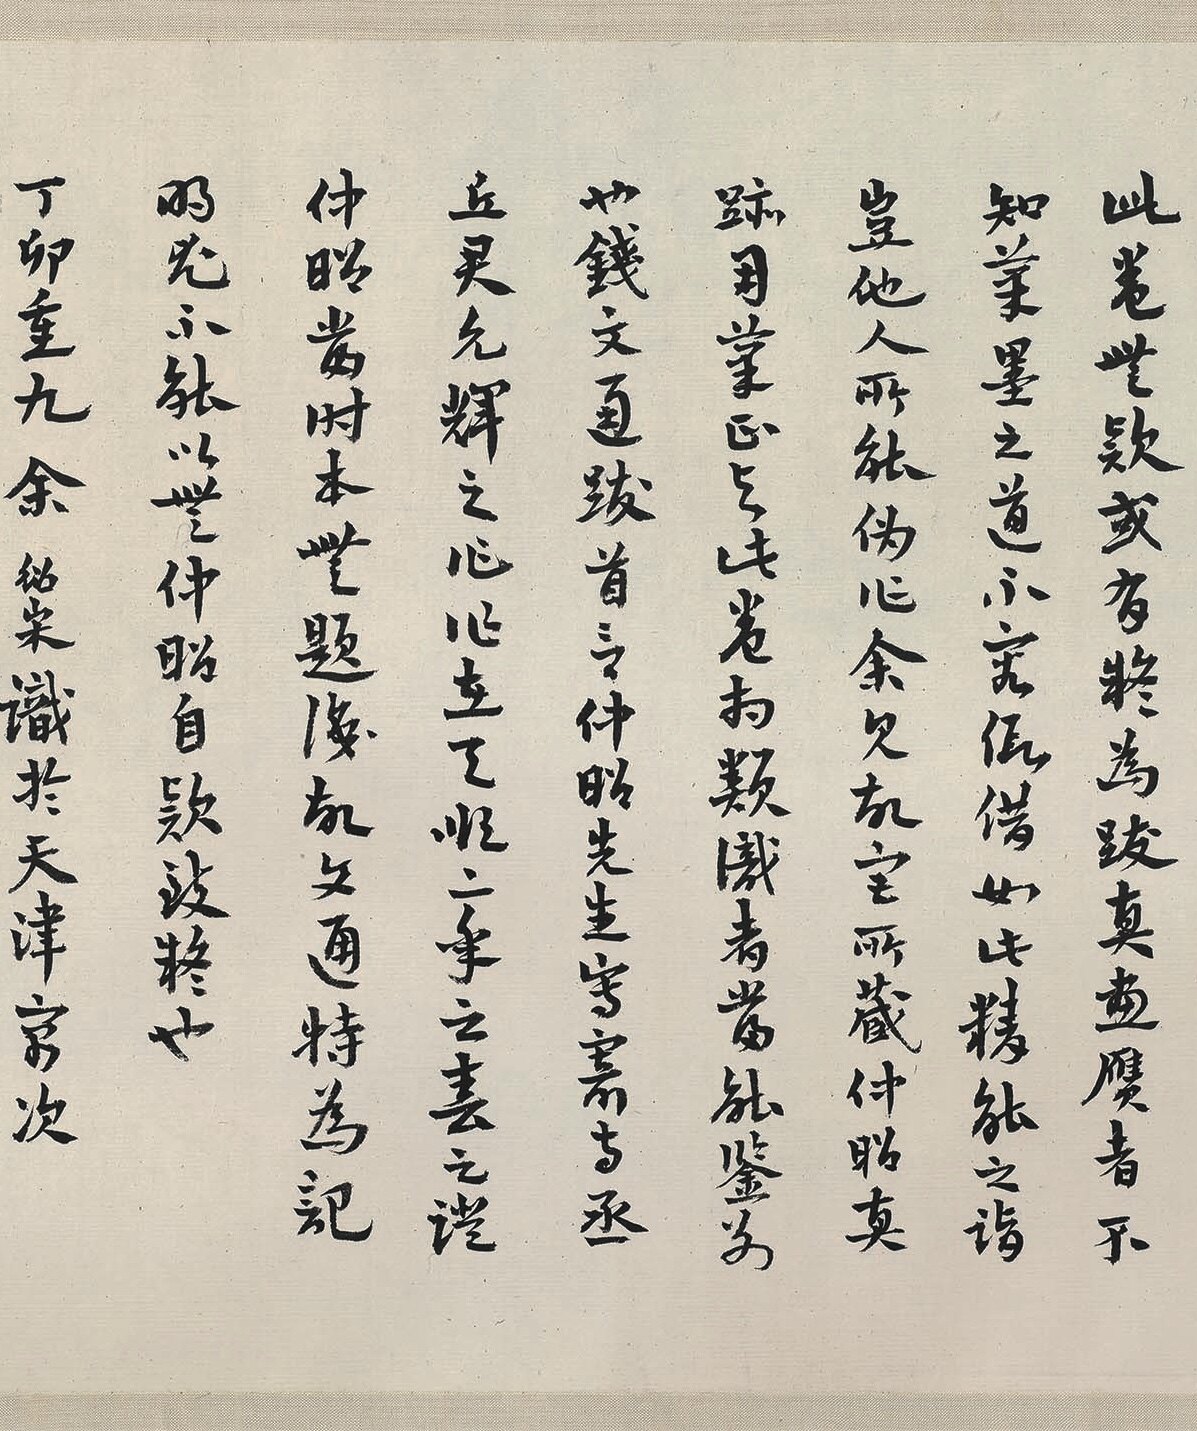 此卷無款或有疑為跋真畫贋者不
知筆墨之道不容假借如此精能之詣
豈他人所能偽作余兄故宅所藏仲昭真
跡用筆正与此卷相類識者當能鑒别
也錢文通跋首言仲昭先生寫寄寺丞
丘君允輝之作作在天順二年之春之證
仲昭當時本無題識故文通特為記
明尤不能以無仲昭自款致疑也
丁卯重九余紹宋識於天津寓次